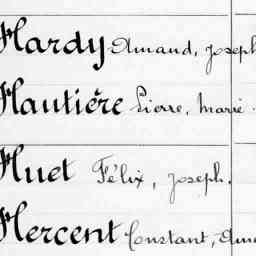 Hardy Amand, Joseph
Hautière Pierre, Marie
Huet Félix, Joseph.
Hercent Constant, Ama